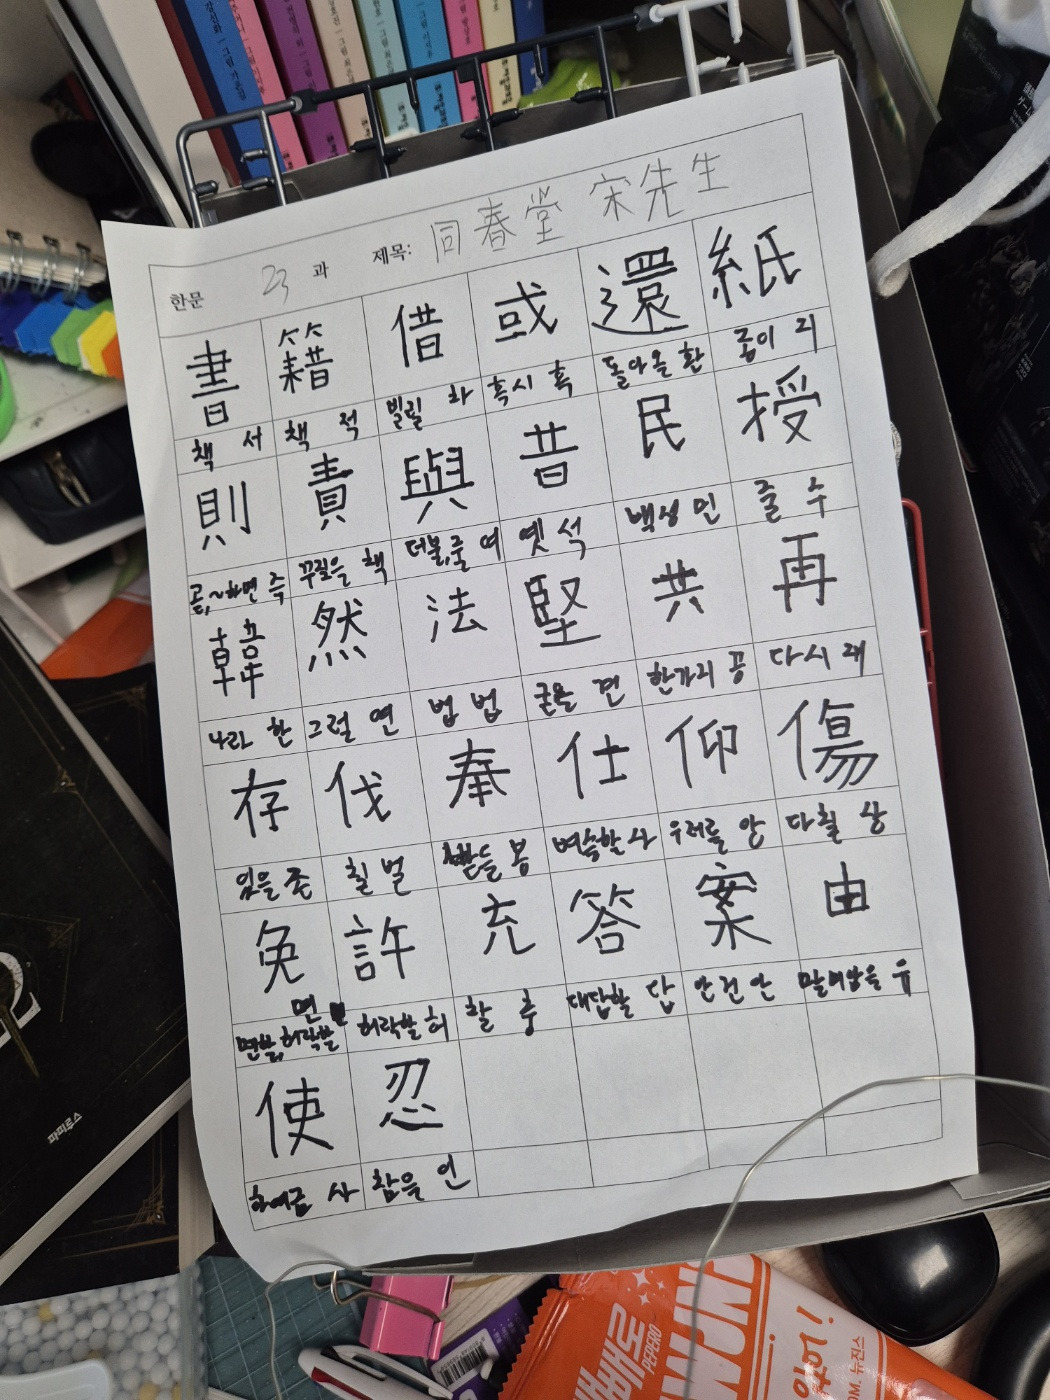 한문 23 과 제목: 同春堂 宋先生
書 籍 借 或 還 紙
책 서 책 적 빌릴 차 혹시 혹 돌아올 환 종이 지
則 責 與 昔 民 授
곧,~하면 즉 꾸짖을 책 더불,줄 여 옛 석 백성 민 줄 수
韓 然 法 堅 共 再
나라 한 그럴 연 법 법 굳을 견 한가지 공 다시 재
存 伐 奉 仕 仰 傷
있을 존 칠 벌 받들 봉 벼슬할 사 우러를 앙 다칠 상
免 許 充 答 案 由
면할,허락할 면 허락할 허 찰 충 대답할 답 안건 안 말미암을 유
使 忍
하여금 사 참을 인
파피루스
빼빼로
PEPERO